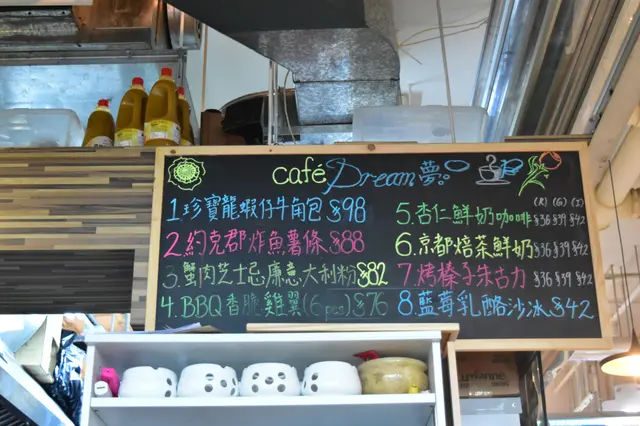 café Dream 夢
(R) (G) (I)
1.珍寶龍蝦仔牛角包 $98
2.約克郡炸魚薯條 $88
3.蟹肉芝士忌廉意大利粉 $82
4.BBQ香脆雞翼(6pcs) $76
5.杏仁鮮奶咖啡 $36 $39 $42
6.京都焙茶鮮奶 $36 $39 $42
7.烤榛子朱古力 $36 $39 $42
8.藍莓乳酪沙冰 $42